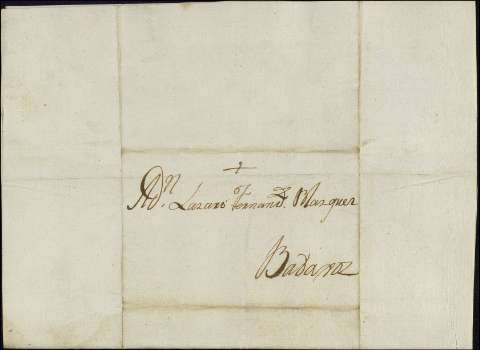 +
A Dn. Lazaro Fernandz. Blazquez
Badaxoz